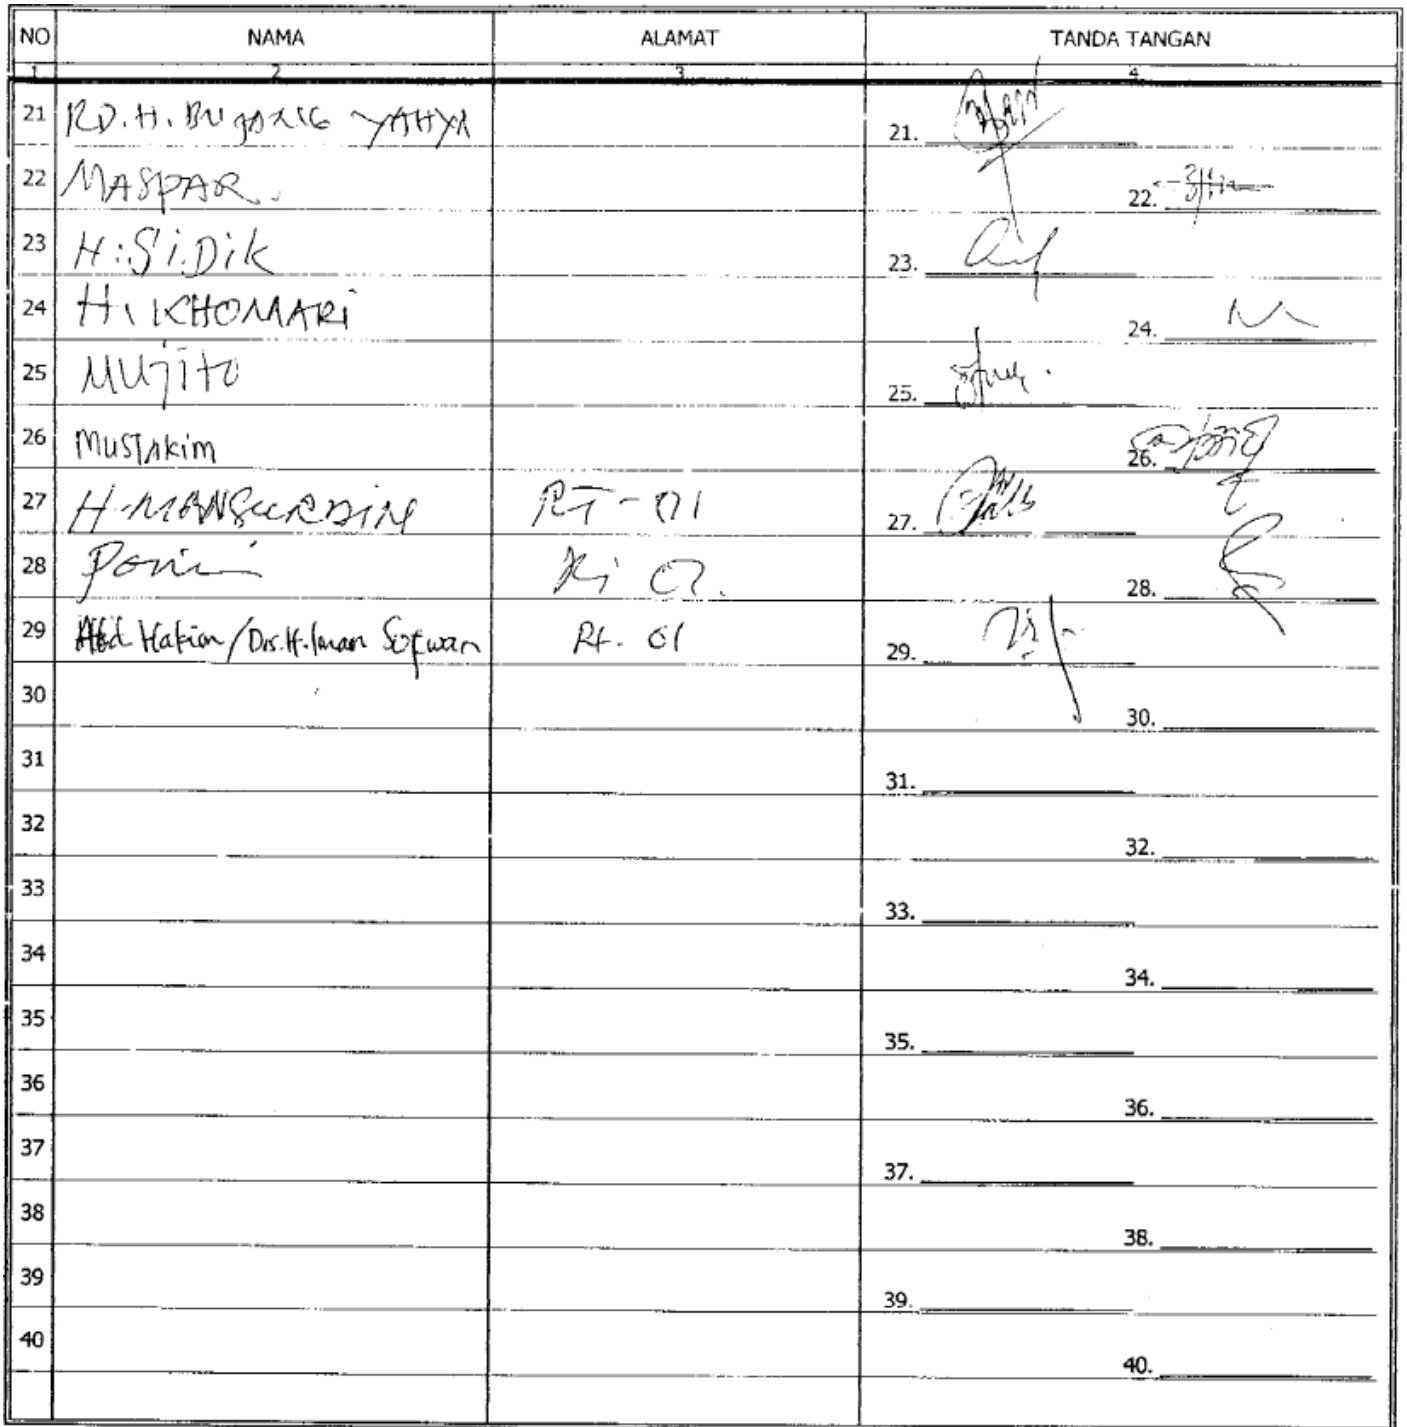 NO NAMA ALAMAT TANDA TANGAN
1 2 3 4
21 RD. H. YAHYA 21.
22 MASPAR. 22.
23 H. SiDik 23.
24 H. KHOMARi 24.
25 MUjito 25.
26 MusTAkim 26.
27 H. MANSURDIN RT-01 27.
28 28.
29 Abd Hakim/Drs.H.Iman Sofwan Rt. 01 29.
30 30.
31 31.
32 32.
33 33.
34 34.
35 35.
36 36.
37 37.
38 38.
39 39.
40 40.